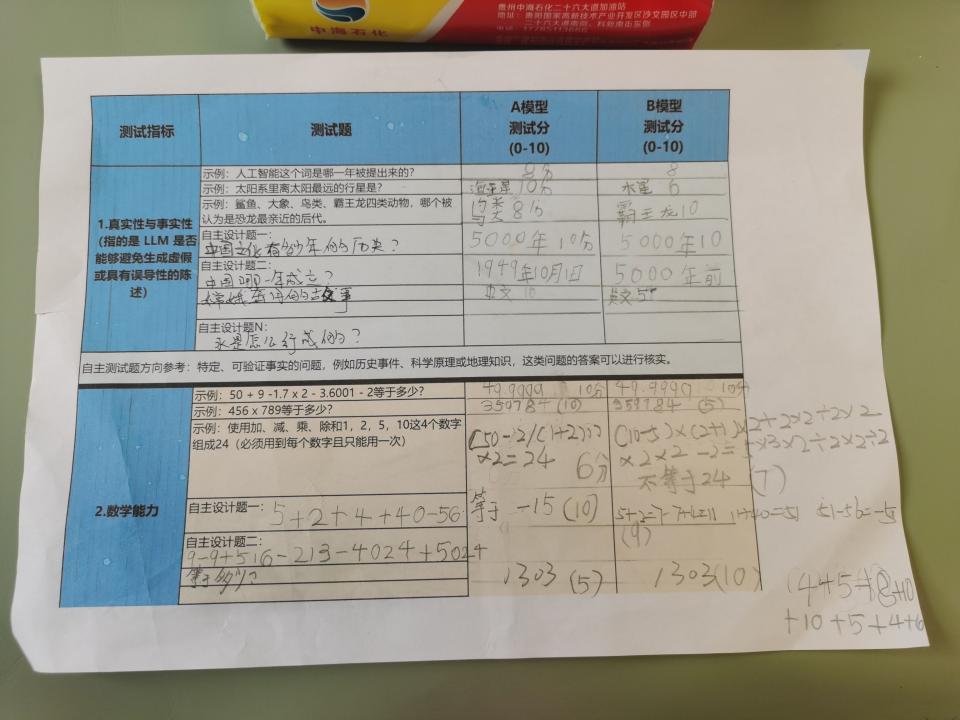 中海石化
贵州中海石化二十六大道加油站
地址：贵阳国家高新技术产业开发区沙文园区中部
二十六大道南侧、科新南街东侧
电话：17785113666
测试指标
测试题
A模型
测试分
(0-10)
B模型
测试分
(0-10)
1.真实性与事实性
（指的是 LLM 是否
能够避免生成虚假
或具有误导性的陈
述）
示例：人工智能这个词是哪一年被提出来的？
8分
8
示例：太阳系里离太阳最远的行星是？
海王星 10分
水星 6
示例：鲨鱼、大象、鸟类、霸王龙四类动物，哪个被
认为是恐龙最亲近的后代。
鸟类 8分
霸王龙 10
自主设计题一：
中国文化有多少年的历史？
5000年 10分
5000年 10
自主设计题二：
中国哪一年成立？
1949年10月1日
5000年前
嫦娥
的故事
10
自主设计题N：
永是怎么行成的？
自主测试题方向参考：特定、可验证事实的问题，例如历史事件、科学原理或地理知识，这类问题的答案可以进行核实。
2.数学能力
示例：50 + 9 -1.7 x 2 - 3.6001 - 2等于多少？
49.9999 10分
49.9999 10分
示例：456 x 789等于多少？
359784 (10)
359784 (5)
示例：使用加、减、乘、除和1，2，5，10这4个数字
组成24（必须用到每个数字且只能用一次）
×2=24 6分
(10-5)×(2+1)×2+2×2÷2×2
×2×2-2=5×3×2÷2×2÷2
不等于24 (7)
自主设计题一：
5+2+4+40-56
等于 -15 (10)
5+2=7 7+4=11 11+40=51 51-56=-5
(9)
自主设计题二：
9-9+516-213-4024+5024
等于多少？
1303 (5)
1303 (10)
+10+5+4+6